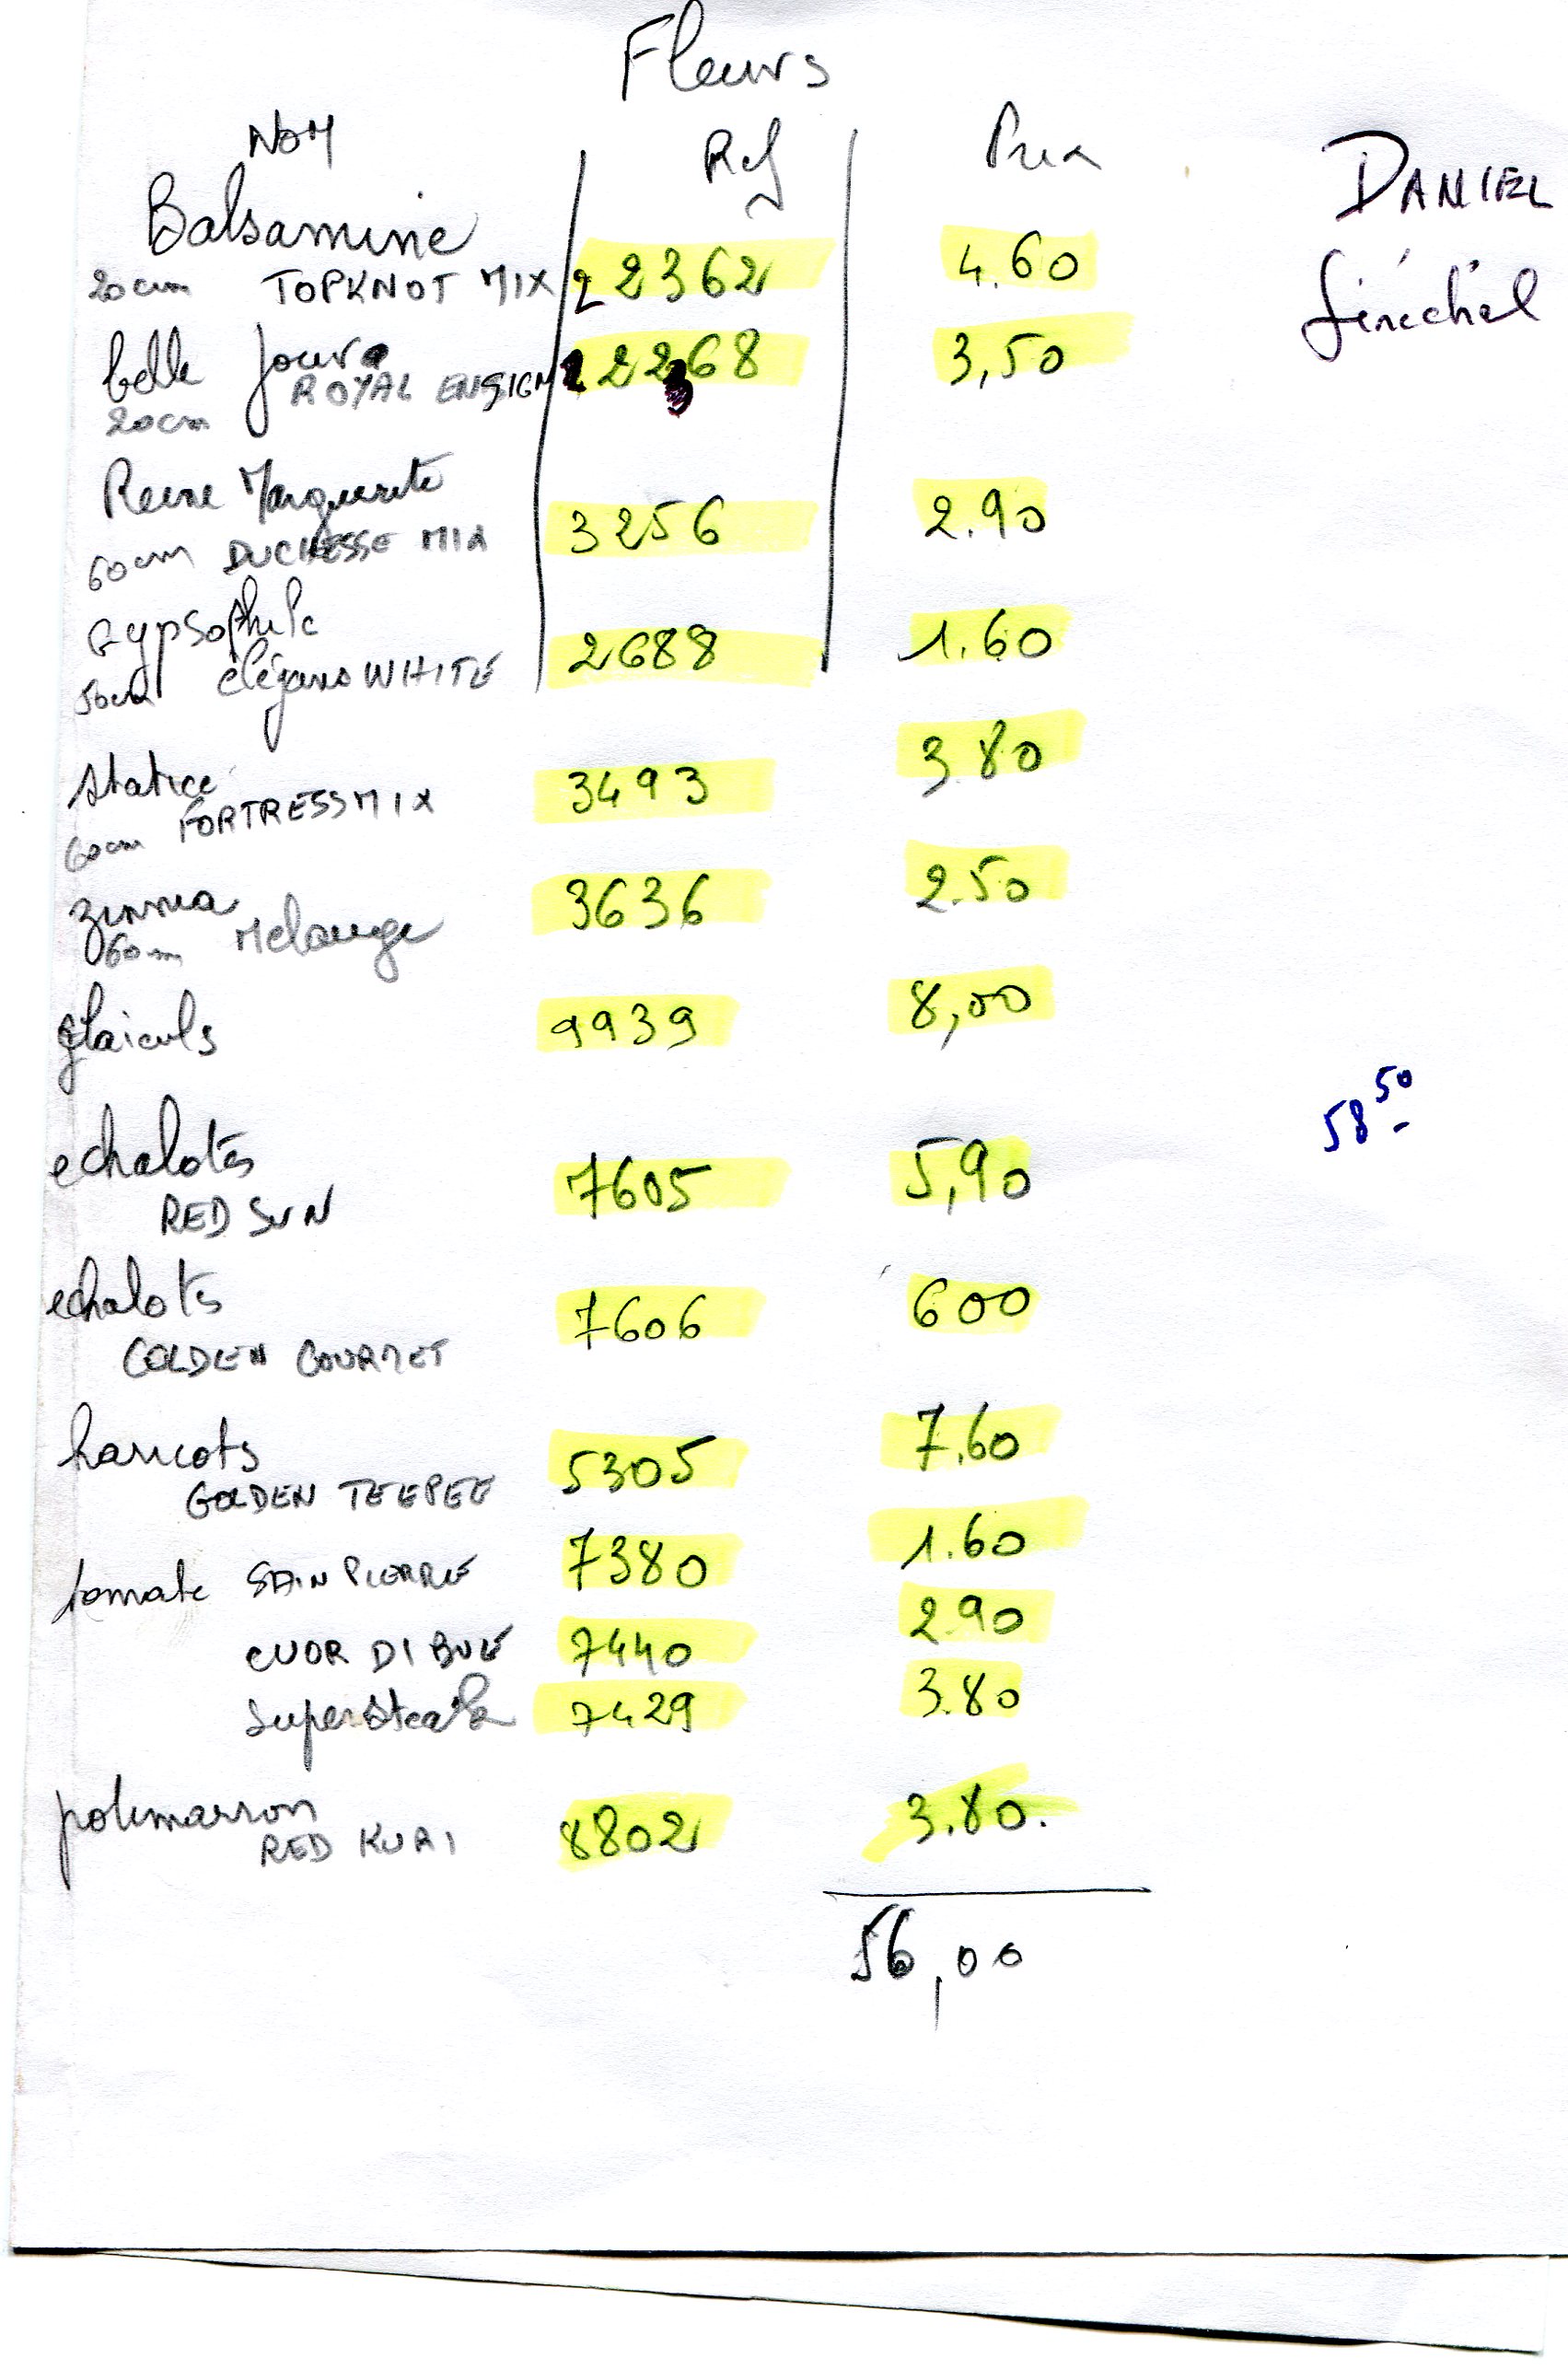 Fleurs
NOM Ref Prix
DANIEL
Sénéchal
Balsamine
20cm TOPKNOT MIX 22362 4.60
belle jour 3,50
20cm ROYAL ENSIGN
Reine Marguerite
60cm DUCHESSE MIX 3256 2.90
Gypsophile
50cm élégans WHITE 2688 1.60
statice
60cm FORTRESS MIX 3493 3.80
zinnia 3636 2.50
60cm Melange
glaieuls 9939 8,00
58 50
echalotes 7605 5,90
RED SUN
echalots 7606 600
GOLDEN GOURMET
haricots 5305 7.60
GOLDEN TEEPEE
tomate SAIN PIERRE 7380 1.60
CUOR DI BUE 7440 2.90
supersteak 7429 3.80
potimarron 8802 3.80.
RED KURI
56,00